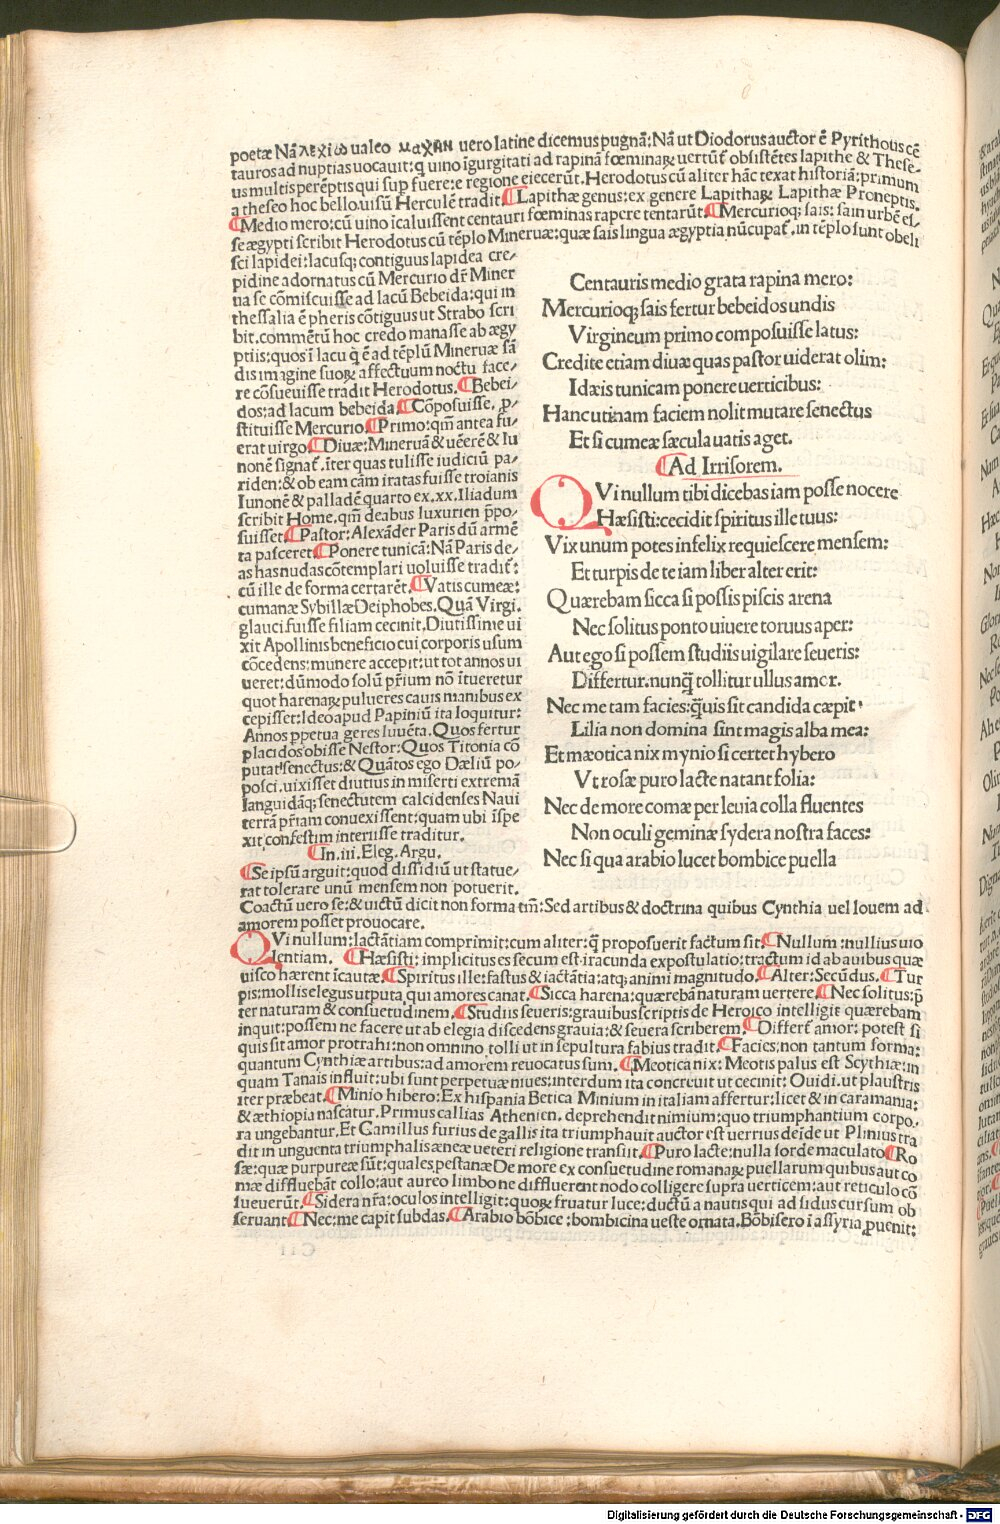 poetæ Nã λεχιω ualeo μαχην uero latine dicemus pugnã: Nã ut Diodorus auctor ē Pyrithous cē
tauros ad nuptias uocauit: q uino īgurgitati ad rapinã fœminaꝝ uertūt obsistētes lapithe & These-
us multis perēptis qui sup fuere: e regione eiecerūt. Herodotus cū aliter hãc texat historiã: primum
a theseo hoc bello uisū Herculē tradit. ¶Lapitha genus: ex genere Lapithaꝝ Lapithæ Proneptis.
¶Medio mero: cū uino īcaluissent centauri fœminas rapere tentarūt. ¶Mercurioq; sais: sain urbē es-
se ægypti scribit Herodotus cū tēplo Mineruæ: quæ sais lingua ægyptia nūcupat̄. in tēplo sunt obeli
sci lapidei: lacusq; contiguus lapidea cre-
pidine adornatus cū Mercurio dr̄ Miner
ua se cōmiscuisse ad lacū Bebeida: qui in
thessalia ē pheris cōtiguus ut Strabo scri
bit. commētū hoc credo manasse ab ægy
ptiis: quos ī lacu q̄ ē ad tēplū Mineruæ sã
dis imagine suoꝝ affectuum noctu face-
re cōsueuisse tradit Herodotus. ¶Bebei-
dos: ad lacum bebeida. ¶Cōposuisse. p-
stituisse Mercurio. ¶Primo: qm̄ antea fu-
erat uirgo. ¶Diuæ: Mineruã & uēerē & Iu
nonē signat̄. iter quas tulisse iudiciū pa-
riden: & ob eam cãm iratas fuisse troianis
Iunonē & palladē quarto ex. xx. Iliadum
scribit Home. qm̄ deabus luxurien p̄po-
suisset. ¶Pastor: Alexãder Paris dū armē
ta pasceret. ¶Ponere tunicã: Nã Paris de-
as has nudas cōtemplari uoluisse tradit̄:
cū ille de forma certarēt. ¶Vatis cumeæ:
cumanæ Sybillæ Deiphobes. Quã Virgi.
glauci fuisse filiam cecinit. Diutissime ui
xit Apollinis beneficio cui corporis usum
cōcedens: munere accepit: ut tot annos ui
ueret: dūmodo solū p̄rium nō ītueretur
quot harenaꝝ pulueres cauis manibus ex
cepisset: Ideo apud Papiniū ita loquitur:
Annos ppetua geres iuuēta. Quos fertur
placidos obisse Nestor: Quos Titonia cō
putat senectus: & Quãtos ego Dæliū po-
posci. uixisset diutius in miserti extremã
languidãq; senectutem calcidenses Naui
terrã p̄riam conuexissent: quam ubi ispe
xit confestim interiisse traditur.
¶In. iii. Eleg. Argu.
¶Se ipsū arguit: quod dissidiū ut statue-
rat tolerare unū mensem non potuerit.
Coactū uero se: & uictū dicit non forma tm̄: Sed artibus & doctrina quibus Cynthia uel Iouem ad
amorem posset prouocare.
QVi nullum: lactãtiam comprimit: cum aliter: q̄ proposuerit factum sit. ¶Nullum: nullius uio
lentiam. ¶Hæsisti: implicitus es secum est iracunda expostulatio: tractum id ab auibus quæ
uisco hærent īcautæ. ¶Spiritus ille: fastus & iactãtia: atq; animi magnitudo. ¶Alter: Secūdus. ¶Tur
pis: mollis elegus utputa qui amores canat. ¶Sicca harena: quærebã naturam uertere. ¶Nec solitus: p̄
ter naturam & consuetudinem. ¶Studiis seueris: grauibus scriptis de Heroico intelligit quærebam
inquit: possem ne facere ut ab elegia discedens grauia: & seuera scriberem. ¶Differt̄ amor: potest si
quis sit amor protrahi: non omnino tolli ut in sepultura fabius tradit. ¶Facies: non tantum forma:
quantum Cynthiæ artibus: ad amorem reuocatus sum. ¶Meotica nix: Meotis palus est Scythiæ: in
quam Tanais influit: ubi sunt perpetuæ niues: interdum ita concreuit ut cecinit: Ouidi. ut plaustris
iter præbeat. ¶Minio hibero: Ex hispania Betica Minium in italiam affertur: licet & in caramania:
& æthiopia nascatur. Primus callias Athenien. deprehendit nimium: quo triumphantium corpo.
ra ungebantur. Et Camillus furius de gallis ita triumphauit auctor est uerrius deīde ut Plinius tra
dit in unguenta triumphalis æneæ ueteri religione transiit. ¶Puro lacte: nulla sorde maculato ¶Ro
sæ: quæ purpureæ sūt: quales pestanæ De more ex consuetudine romanaꝝ puellarum quibus aut co
mæ diffluebãt collo: aut aureo limbo ne diffluerent nodo colligere supra uerticem: aut reticulo cō
sueuerūt. ¶Sidera nr̃a: oculos intelligit: quoꝝ fruatur luce: ductū a nautis qui ad sidus cursum ob
seruant ¶Nec: me capit subdas. ¶Arabio bōbice: bombicina ueste ornata. Bōbisero ī assyria puenit:
Centauris medio grata rapina mero:
Mercurioq; sais fertur bebeidos undis
Virgineum primo composuisse latus:
Credite etiam diuæ quas pastor uiderat olim:
Idæis tunicam ponere uerticibus:
Hanc utinam faciem nolit mutare senectus
Et si cumeæ sæcula uatis aget.
¶Ad Irrisorem.
QVi nullum tibi dicebas iam posse nocere
Hæsisti: cecidit spiritus ille tuus:
Vix unum potes infelix requiescere mensem:
Et turpis de te iam liber alter erit:
Quærebam sicca si possis piscis arena
Nec solitus ponto uiuere toruus aper:
Aut ego si possem studiis uigilare seueris:
Differtur. nunq̄ tollitur ullus amor.
Nec me tam facies: q̄uis sit candida cæpit.
Lilia non domina sint magis alba mea:
Et mæotica nix mynio si certet hybero
Vt rosæ puro lacte natant folia:
Nec de more comæ per leuia colla fluentes
Non oculi geminæ sydera nostra faces:
Nec si qua arabio lucet bombice puella
Digitalisierung gefördert durch die Deutsche Forschungsgemeinschaft - DFG